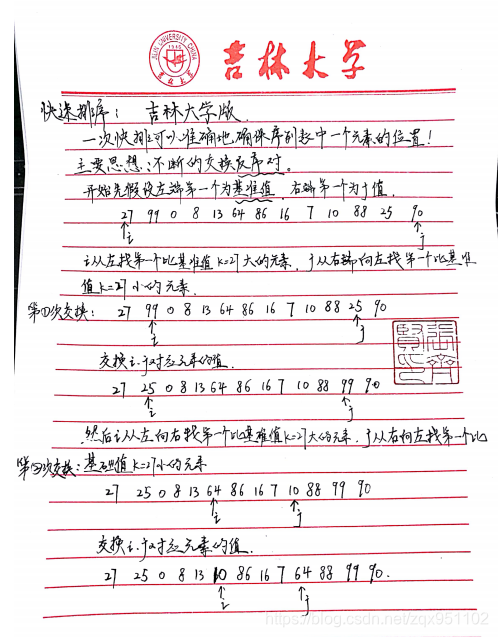 JILIN UNIVERSITY CHINA
1946
吉林大学
吉林大学
快速排序： 吉林大学版.
一次快排可以准确地确保序列表中一个元素的位置！
主要思想：不断的交换反序对。
开始先假设左端第一个为基准值，右端第一个为j值.
27 99 0 8 13 64 86 16 7 10 88 25 90
i j
i从左找第一个比基准值k=27大的元素，j从右端向左找第一个比基准
值k=27小的元素.
第一次交换： 27 99 0 8 13 64 86 16 7 10 88 25 90
i j
交换i、j对应元素的值.
27 25 0 8 13 64 86 16 7 10 88 99 90
i j
然后i从左向右找第一个比基准值k=27大的元素，j从右向左找第一个比
第二次交换：基准值k=27小的元素
27 25 0 8 13 64 86 16 7 10 88 99 90
i j
交换i、j对应元素的值.
27 25 0 8 13 10 86 16 7 64 88 99 90.
i j
https://blog.csdn.net/zqx951102